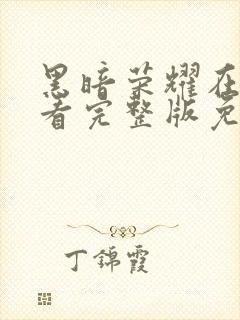 黑暗荣耀在
看完整版免
丁錦霞